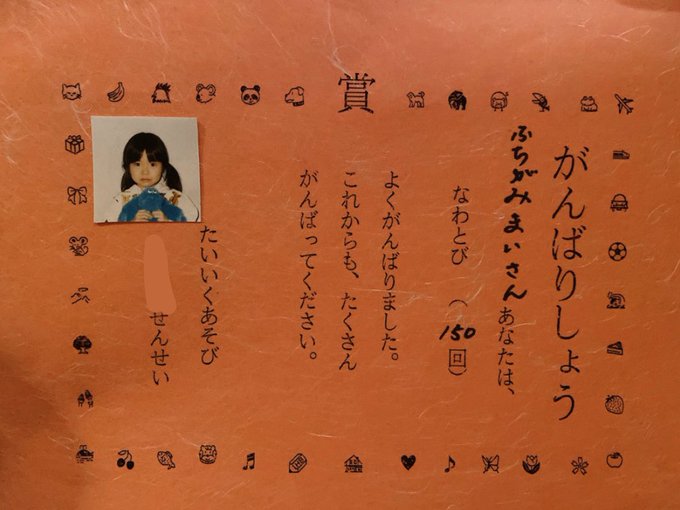 賞
がんばりしょう
ふちがみまいさんあなたは、
なわとび（150回）
よくがんばりました。
これからも、たくさん
がんばってください。
たいいくあそび
せんせい